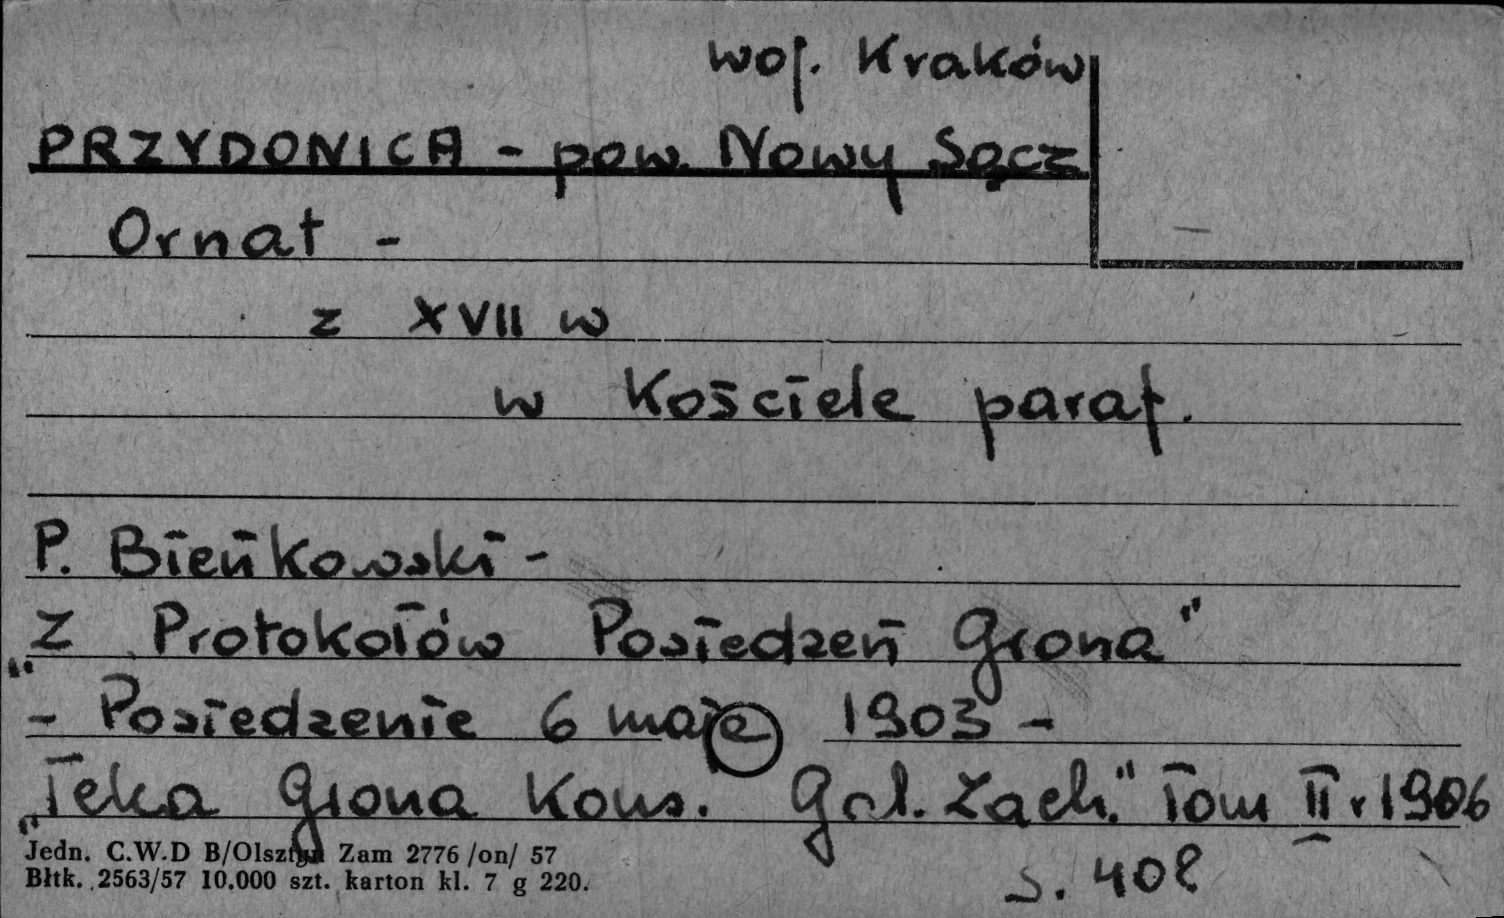 woj. Kraków
PRZYDONICA - pow. Nowy Sącz
Ornat -
z XVII w
w Kościele paraf.
P. Bieńkowski -
"Z Protokołów Posiedzeń Grona"
- Posiedzenie 6 maja 1903 -
"Teka Grona Kons. Gal. Zach." Tom II r 1906
s. 408
Jedn. C.W.D B/Olsztyn Zam 2776 /on/ 57
Błtk. 2563/57 10.000 szt. karton kl. 7 g 220.